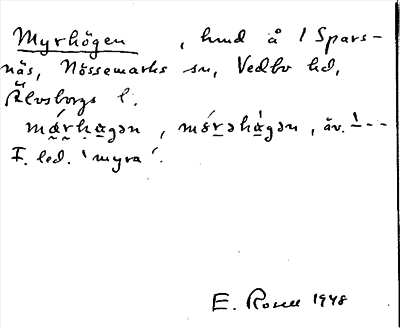 Myrhögen, hmd å 1 Spars-
näs, Nössemarks sn, Vedbo hd,
Älvsborgs l.
márhagən, mórəhàgən, äv. --
F. led. 'myra'.
E. Rosell 1948